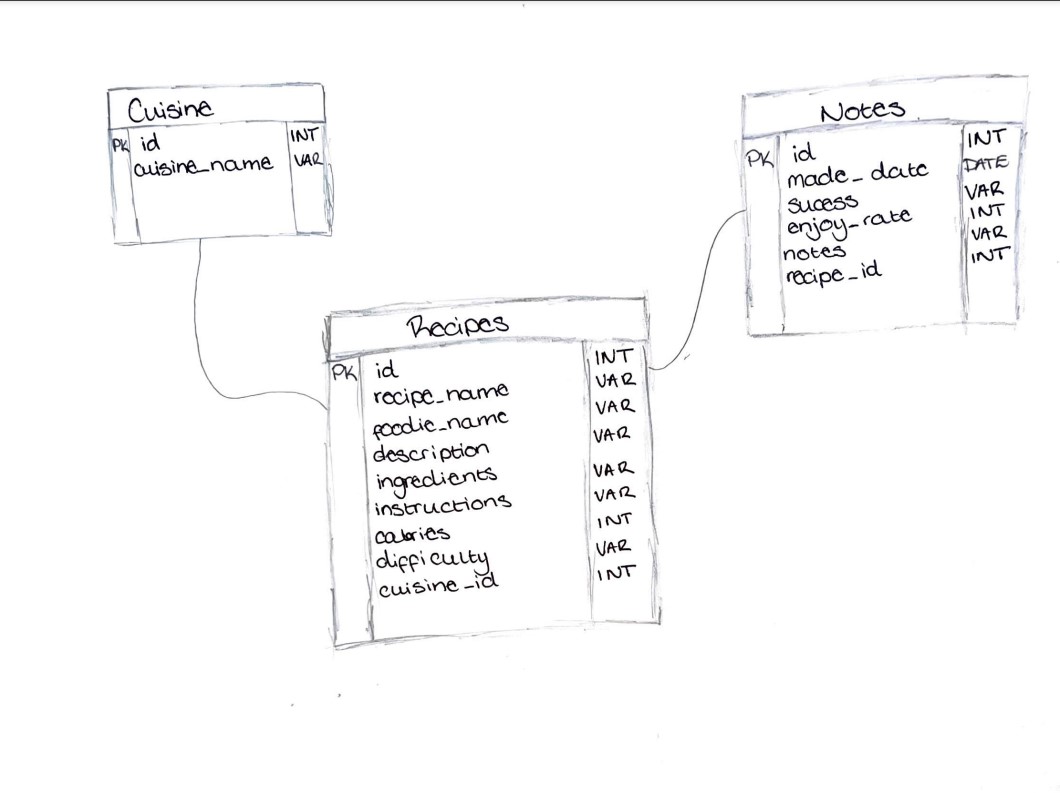 Cuisine
PK id INT
cuisine_name VAR
Notes
PK id INT
made_date DATE
sucess VAR
enjoy_rate INT
notes VAR
recipe_id INT
Recipes
PK id INT
recipe_name VAR
foodie_name VAR
description VAR
ingredients VAR
instructions VAR
calories INT
difficulty VAR
cuisine_id INT